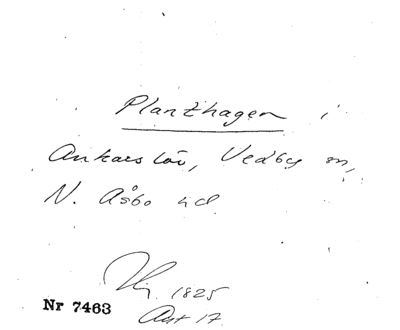 Planthagen i
Ankarslöv, Vedby sn,
N. Åsbo hd
1825
Nr 7463
Akt 17